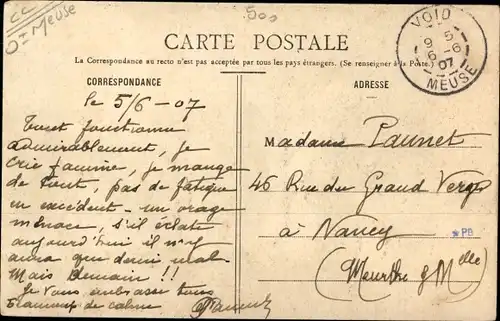 CC
Dt Meuse
500
CARTE POSTALE
La Correspondance au recto n'est pas acceptée par tous les pays étrangers. (Se renseigner à la Poste.)
CORRESPONDANCE
ADRESSE
VOID
9 5
6 -6
07
MEUSE
le 5/6-07
Tout fonctionne
admirablement, je
crie famine, je mange
de tout, pas de fatigue
un excédent - un orage
menace, s'il éclate
aujourd'hui il n'y
aura que demi mal
Mais Demain !!
Je vous embrasse tous
Beaucoup de calme
Madame Paunet
46 Rue du Grand Verger
à Nancy
(Meurthe & Mlle)
*PB